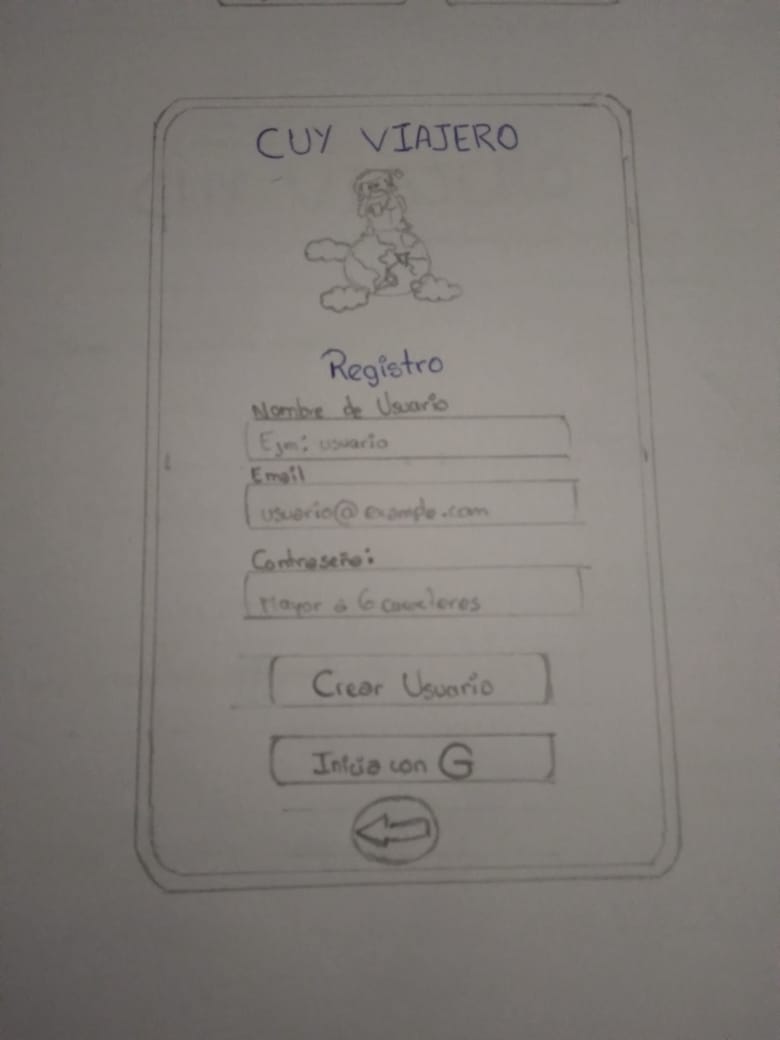 CUY VIAJERO
Registro
Nombre de Usuario
Ejm: usuario
Email
usuario@example.com
Contraseña:
Mayor a 6 caracteres
Crear Usuario
Inicia con G